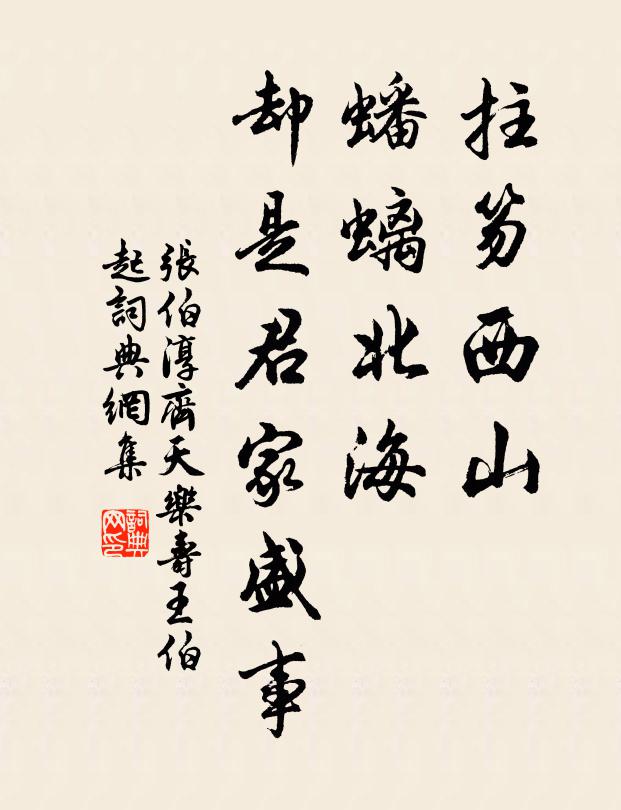 拄笏西山
蟠螭北海
却是君家盛事
張伯淳齊天樂壽王伯
起詞典網集
詞典
网印